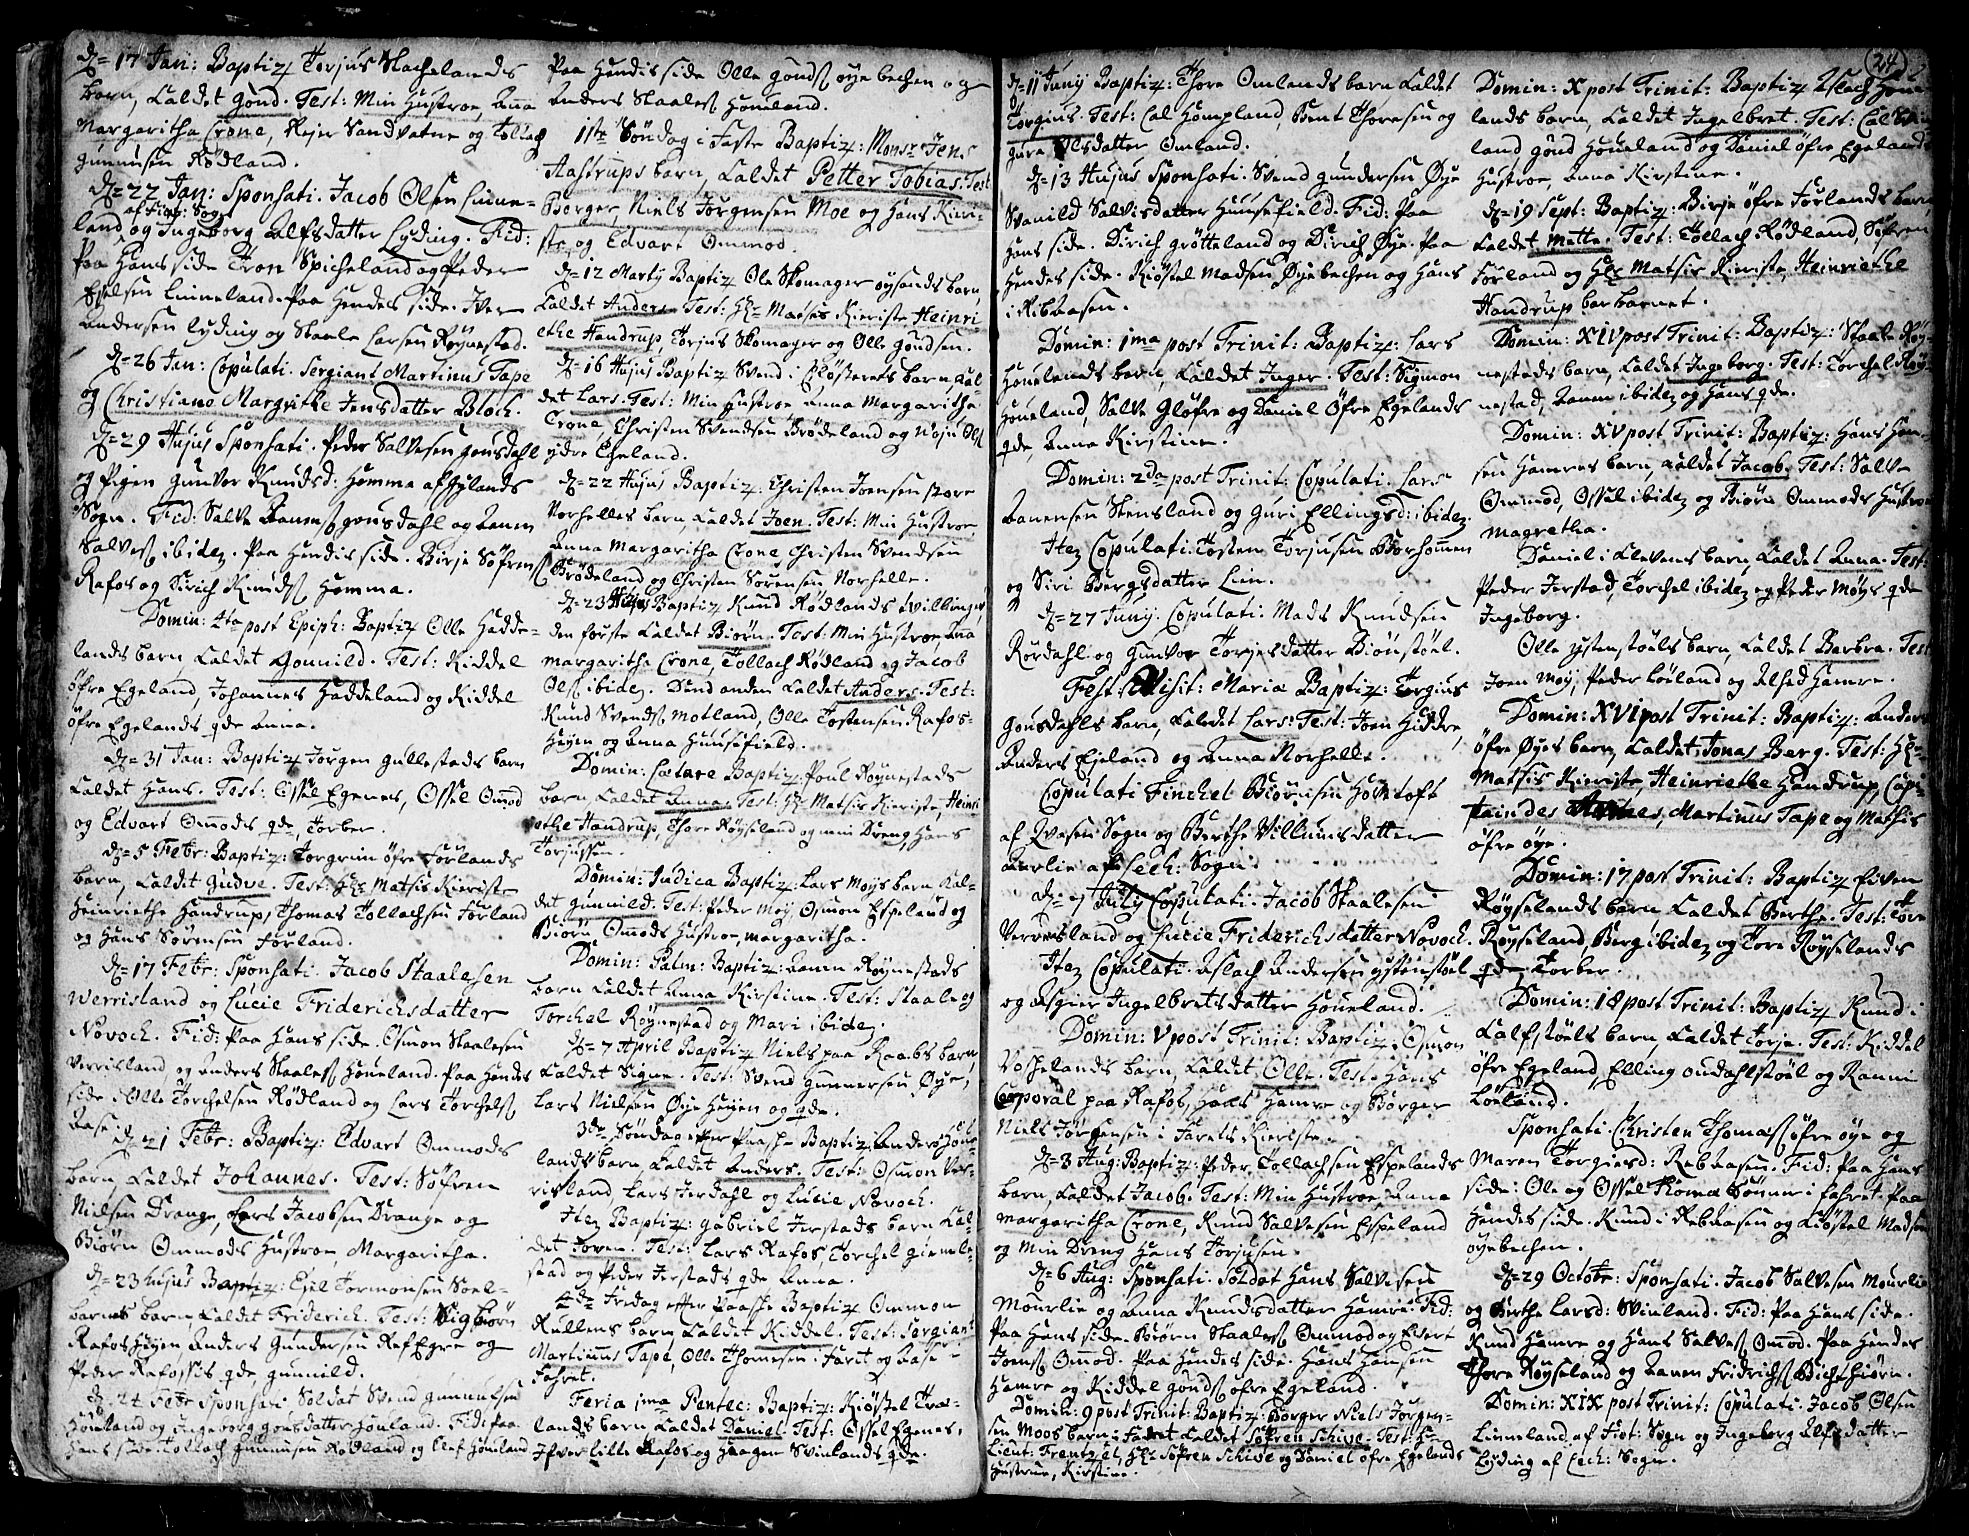 d= 17 Jan: Baptiz Torjus Stachelands
barn, kaldet Gond. Test: Min Hustroe, Anna
Margaritha Crone, Rejer Sandvatne og Tollach
Gunnusen Rødland.
d= 22 Jan: Sponsati. Jacob Olsen Linne-
af Fiot: Sog
land og Ingeborg Alfsdatter Lyding. Fid:
Paa Hans side Tron Spicheland og Peder
Ejelsen Linneland. Paa Hendes side. Iver
Andersen Lyding og Staale Larsen Røynestad.
d= 26 Jan: Copulati. Sergiant Martinus Tape
og Christiane Margrethe Jensdatter Bloch.
d= 29 Hujus Sponsati. Peder Salvesen Gousdahl
og Pigen Gunvor Knudsd: Homma af Gylands
Sogn. Fid: Salve Gousdahl og
Salves ibidem. Paa Hendis side. Birje Søfrens
Rafos og Tirich Knuds Homma.
Domin: 4ta post Epiph: Baptiz Olle Hadde-
lands barn, kaldet Gonnild. Test: Kiddel
øfre Egeland, Johannes Haddeland og Kiddel
øfre Egelands qde Anna.
d= 31 Jan: Baptiz Jørgen Gullestads barn
kaldet Hans. Test: Ossel Egenes, Ossel Omod
og Edvart Omods qde, Torber.
d= 5 Febr: Baptiz: Torgrim øfre Førlands
barn, kaldet Gudve. Test: Hr Mathis Kieriste
Heinriethe Handrup, Thomas Tollachsen Førland
og Hans Sørensen Førland.
d= 17 Febr: Sponsati. Jacob Staalesen
Werrisland og Lucie Friderichsdatter
Novoch. Fid: Paa Hans side. Osmon Staalesen
Verrisland, og Anders Staales Houeland. Paa Hendes
side. Olle Torchelsen Rødland og Lars Torchels
Aase.
d= 21 Febr: Baptiz: Edvart Ommods
barn, kaldet Johannes. Test: Søfren
Nielsen Drange, Lars Jacobsen Drange og
Biørn Ommods Hustroe, Margaritha.
d= 23 hujus Baptiz: Ejel Tormonsen Soel-
barnes barn, kaldet Friderich. Test: Sigbiørn
Rafos Heyen Anders Gundersen Rafos og
Peder Rafosses qde, Gunnild.
d= 24 Febr Sponsati. Soldat Svend Gunnulsen
Houeland og Ingeborg Gousdatter Houland. Fid: Paa
Hans side Tollach Gunnusen Rødland og Oluf Houland
Paa Hendis side Olle Gonds Øyebechen og
Anders Staales Houeland.
1ste Søndag i Faste Baptiz: Monsr Jens
Aastrups barn, kaldet Petter Tobias. Test
Borger, Niels Jørgensen Moe og Hans Kieri-
ste og Edvart Ommod.
d= 12 Marty Baptiz Ole Skomager Øysands barn,
kaldet Anders Test: Hr Mathis Kieriste Heinri-
ethe Handrup, Torjus Skomager og Olle Gondsen.
d= 16 Hujus Baptiz Svend i Kløsterets barn kal-
det Lars. Test: Min Hustroe Anna Margaritha
Crone, Christen Svendsen Brødeland og Ols
ydre Egeland.
d= 22 Hujus Baptiz: Christen Joensen store
Norhelles barn, kaldet Joen. Test: Min Hustroe
Anna Margaritha Crone Christen Svendsen
Brødeland og Christen Sørensen Norhelle.
d= 23 Hujus Baptiz Knud Rødlands tvillinger
den første kaldet Biørn. Test: Min Hustroe, Ana
Margaritha Crone, Tollach Rødland og Jacob
Ols ibidem. Dend anden kaldet Anders. Test:
Knud Svends Motland, Olle Tostensen Rafos-
Heyen og Anna Huusefield.
Domin: Lætare Baptiz Poul Røynestads
barn kaldet Anna. Test: Hr Mathis Kieriste, Heinri
ethe Handrup, Thore Røyseland og min Dreng, Hans
Torjussen.
Domin: Judica Baptiz: Lars Moys barn kal-
det Gunnild. Test: Peder Moy, Osmon Espeland og
Biørn Omods Hustroe, Margaritha.
Domin: Palm: Baptiz: Røynestads
barn kaldet Anna Kirstine. Test: Staale og
Torchel Røynestad og Mari ibidem.
d= 7 April Baptiz Niels paa Raabs barn,
kaldet Signe. Test: Svend Gunnersen Øye,
Lars Nielsen Øye Heyen og qde.
3die Søndag efter Paasche Baptiz Anders Houe-
lands barn, kaldet Anders. Test: Osmon Ver-
risland, Lars Jerdahl og Lucie Novoch.
Item Baptiz: Gabriel Jerstads barn kal-
det Joren. Test: Lars Rafos, Torchel Gimle-
stad og Peder Jerstads qde Anna.
4de Fredag efter Paasche Baptiz Ommon
Rullens barn, kaldet Kiddel. Test: Sergiant
Martinus Tape, Olle Thomesen i Faret og Aase i
Fahret.
Feria 1ma Pentec: Baptiz: Kiøstel Træ-
lands barn kaldet Daniel. Test: Ossel Egenes,
Ifver lille Rafos og Haagen Svinlands qde.
d= 11 Juny Baptiz: Thore Omlands barn kaldet
Torgius. Test: Cal Hompland, Bent Thoresen og
Gura Olsdatter Omland.
d= 13 Hujus Sponsati. Svend Gundersen Øye
Svanild Salvisdatter Huusefield. Fid: Paa
Hans side. Dirich Grøtteland og Dirich Øye. Paa
Hendes side. Kiøstel Madsen Øyebechen og Hans
i Ribaasen.
Domin: 1ma post Trinit: Baptiz: Lars
Houelands barn, kaldet Inger. Test: Sigmon
Houeland, Salve Gløfre og Daniel Øfre Egelands
qde, Anna Kirstine.
Domin: 2da post Trinit: Copulati. Lars
Aanensen Stensland og Guri Ellingsd: ibidem.
Item Copulati. Tosten Torjusen Borhomen
og Siri Bergsdatter Lien.
d= 27 Juny. Copulati. Mads Knudsen
Rørdahl og Gunvor Torjesdatter Biønstøel.
Fest: Visit: Mariæ Baptiz: Torgius
Gousdahls barn, kaldet Lars. Test: Joen Hidre,
Anders Ejeland og Anna Norhelle.
Copulati Finchel Biørnsen Homtoft
af Qvasen Sogn og Berthe Villumsdatter
Aurlie af Lech: Sogn.
d= 7 July Copulati. Jacob Staalesen
Verrisland og Lucie Friderichsdatter Novoch.
Item Copulati. Aslach Andersen ystenstøel
og Asgier Ingelbretsdatter Houeland.
Domin: V post Trinit: Baptiz Osmon
Voshelands barn, kaldet Olle. Test: Hans
Corporal paa Rafos, Hans Hamre og Borger
Niels Jørgensen i Farets Kieriste.
d= 3 Aug: Baptiz: Peder Tollachsen Espelands
barn, kaldet Jacob. Test: Min Hustroe, Anna
Margaritha Crone, Knud Salvesen Espeland
og Min Dreng Hans Torjusen.
d= 6 Aug: Sponsati. Soldat Hans Salvesen
Mourlie og Anna Knudsdatter Hamre. Fid:
Paa Hans side. Biørn Staales Ommod og Evert
Joens Omod. Paa Hendes side. Hans Hansen
Hamre og Kiddel Gonds øfre Egeland.
Domin: 9 post Trinit: Baptiz: Borger Niels Jørgen-
sen Moes barn i Faret kaldet Søfren Schive. Test: Hr
Lieut: Trentzel, Hr Søfren Schive og Daniel øfre Egelands
Hustroe, Kirstine.
24
Domin: X post Trinit: Baptiz Aslach Houe-
lands barn, kaldet Ingelbret. Test: Cal
land, Gond Houeland og Daniel øfre Egelands
Hustroe, Anna Kirstine.
d= 19 Sept: Baptiz: Birje øfre Førlands barn,
kaldet Mette. Test: Tollach Rødland, Søfren
Førland og Hr Mathis Kieriste, Heinriethe
Handrup bar barnet.
Domin: XIV post Trinit: Baptiz: Staale Røy-
nestads barn, kaldet Ingeborg. Test: Torchel Røy-
nestad, Aanen ibidem og Hans qde.
Domin: XV post Trinit: Baptiz: Hans Han-
sen Hamres barn, kaldet Jacob. Test: Salve
Ommod, Ossel ibidem og Biørn Ommods Hustroe
Magretha.
Daniel i Klevens barn, kaldet Anna. Test:
Peder Jerstad, Torchel ibidem og Peder Moys qde
Ingeborg.
Olle ystenstøels barn, kaldet Barbra. Test
Joen Moy, Peder Løiland og Hamre.
Domin: XVI post Trinit: Baptiz: Anders
øfre Øyes barn, kaldet Jonas Berg. Test: Hr
Mathis Kieriste, Heinriethe Handrup, Capi-
tain des , Martinus Tape og Mathis
øfre øye.
Domin: 17 post Trinit: Baptiz Eiven
Røyselands barn kaldet Berthe. Test: Tore
Røyseland, Berg ibidem og Tore Røyselands
qde, Torber.
Domin: 18 post Trinit: Baptiz Knud i
Kalfstøels barn, kaldet Torje. Test: Kiddel
øfre Egeland, Elling Oudahlstøel og Ranni
Løeland.
Sponsati. Christen Thomas øfre øye og
Maren Torgiersd: Rebaasen. Fid: Paa Hans
side: Ole og Ossel Thomæ Sønner i Fahret. Paa
Hendes side. Knud i Rebaasen og Kiøstel Madsen
Øyebechen.
d= 29 Octobr: Sponsati. Jacob Salvesen Mourlie
og Berthe Larsd: Svinland. Fid: Paa Hans side.
Knud Hamre og Hans Salves Omod. Paa Hendes
Thore Røyseland og Aanen Fridrichs Bichebiørn.
Domin: XIX post Trinit: Copulati. Jacob Olsen
Linneland af Fiot: Sogn og Ingeborg Alfsdatter
Lyding af Lech: Sogn.